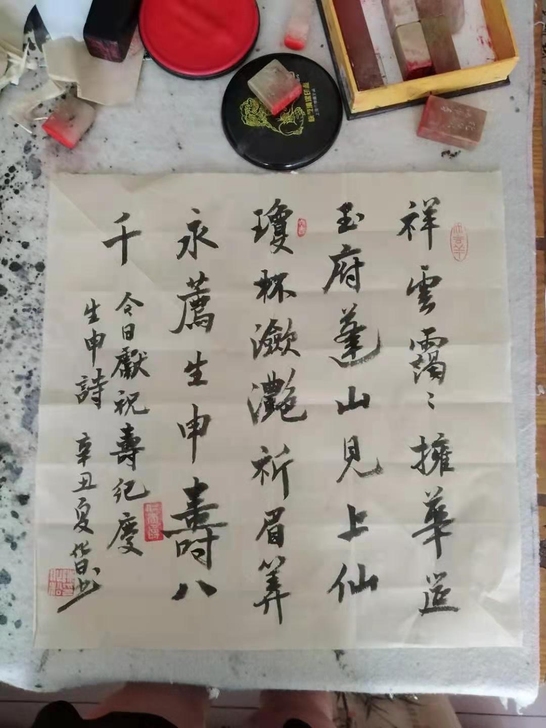 祥雲靄〻擁華筵
玉府蓬山見上仙
瓊杯瀲灧祈眉筭
永薦生申壽八
千
今日獻祝壽紀慶
生申詩 辛丑夏